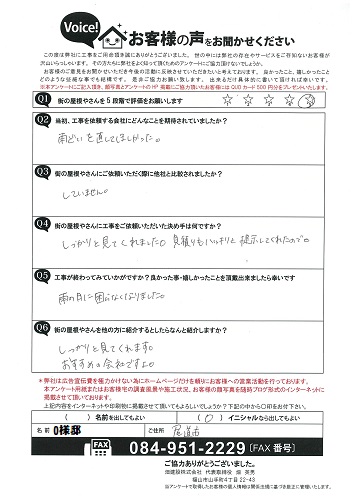 Voice!
お客様の声をお聞かせください
この度は弊社に工事をご用命頂き誠にありがとうございました。世の中には弊社の存在やサービスをご存知ないお客様が
沢山いらっしゃいます。その方たちに弊社をよく知って頂くためのアンケートにご協力頂けないでしょうか。
お客様のご意見をお聞かせいただき今後の活動に反映させていただきたいと考えております。良かったこと、嬉しかったこと
Q1 街の屋根やさんを5段階で評価をお願いします
☆ ☆ ☆ ☆ ☆
Q2 当初、工事を依頼する会社にどんなことを期待されていましたか?
雨どいを直してほしかった。
Q3 街の屋根やさんにご依頼いただく際に他社と比較されましたか?
していません。
Q4 街の屋根やさんに工事をご依頼いただいた決め手は何ですか?
しっかりと見てくれました。見積りもハッキリと提示してくれたので。
Q5 工事が終わってみていかがですか?良かった事・嬉しかったことを頂戴出来ましたら幸いです
雨の日に困らなくなりました。
Q6 街の屋根やさんを他の方に紹介するとしたらなんと紹介しますか?
しっかりと見てくれます。
おすすめの会社ですよ。
※弊社は広告宣伝費を極力かけない為にホームページだけを頼りにお客様への営業活動を行っております。
本アンケート用紙またはお客様宅の調査風景や施工状況、お客様の顔写真を随時ブログ形式のインターネットに
掲載させて頂いております。
上記内容をインターネットや印刷物に掲載させて頂いてもよろしいでしょうか?下記の中から〇印をお付け下さい。
( ) 名前を出してもよい (〇) イニシャルなら出してもよい
名前 O様邸 ご住所 尾道市
FAX 084-951-2229 [FAX 番号]
ご協力ありがとうございました。
福山市山手町4丁目22-43
※アンケートで取得したお客様の個人情報は関係法規に基づき厳正に管理いたします。